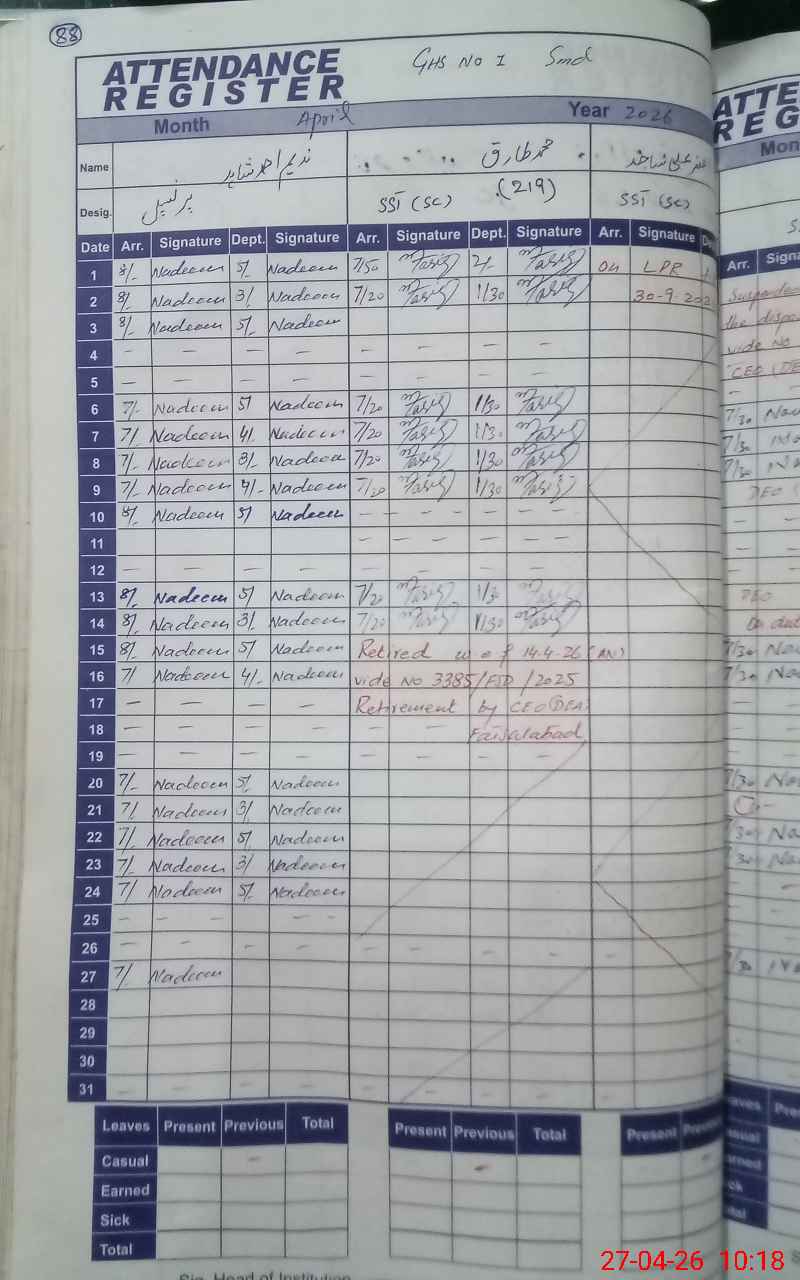 88
ATTENDANCE REGISTER GHS No 1 Smd
Month April Year 2026
Name ندیم احمد شاہد محمد طارق
Desig. پرنسپل SST (SC) (219) SST (SC)
Date Arr. Signature Dept. Signature Arr. Signature Dept. Signature Arr. Signature
1 8/- Nadeem 5/- Nadeem 7/50 Tariq 2/- Tariq on LPR
2 8/- Nadeem 3/- Nadeem 7/20 Tariq 1/30 Tariq 30-9-202
3 8/- Nadeem 5/- Nadeem
4 — — — — — — — —
5 — — — — — — — —
6 7/- Nadeem 5/ Nadeem 7/20 Tariq 1/30 Tariq
7 7/- Nadeem 4/- Nadeem 7/20 Tariq 1/30 Tariq
8 7/- Nadeem 3/- Nadeem 7/20 Tariq 1/30 Tariq
9 7/- Nadeem 4/- Nadeem 7/20 Tariq 1/30 Tariq
10 8/- Nadeem 5/ Nadeem — — — —
11 — — — — — — — —
12 — — — — — — — —
13 8/- Nadeem 5/ Nadeem 7/20 Tariq 1/30 Tariq
14 8/- Nadeem 3/- Nadeem 7/20 Tariq 1/30 Tariq
15 8/- Nadeem 5/ Nadeem Retired w e f 14.4.26 (AN)
16 7/ Nadeem 4/- Nadeem vide No 3385/FSD/2025
17 — — — — Retirement by CEO (DEA)
18 — — — — — — Faisalabad
19 — — — —
20 7/- Nadeem 5/- Nadeem
21 7/ Nadeem 3/ Nadeem
22 7/- Nadeem 5/ Nadeem
23 7/- Nadeem 3/ Nadeem
24 7/ Nadeem 5/- Nadeem
25 — — — —
26 — — — — — — — — —
27 7/- Nadeem
28
29
30
31 — — — — — — — —
Leaves Present Previous Total Present Previous Total Present
Casual - -
Earned
Sick
Total
Sig. Head of Institution
27-04-26 10:18
ATTE
REG
Mon
Arr. Signa
Suspende
the dispo
vide No
CEO (DE
7/30
7/30
7/30
DEO
DEO
On dut
7/30
7/30
7/30
7/30
7/30
7/30